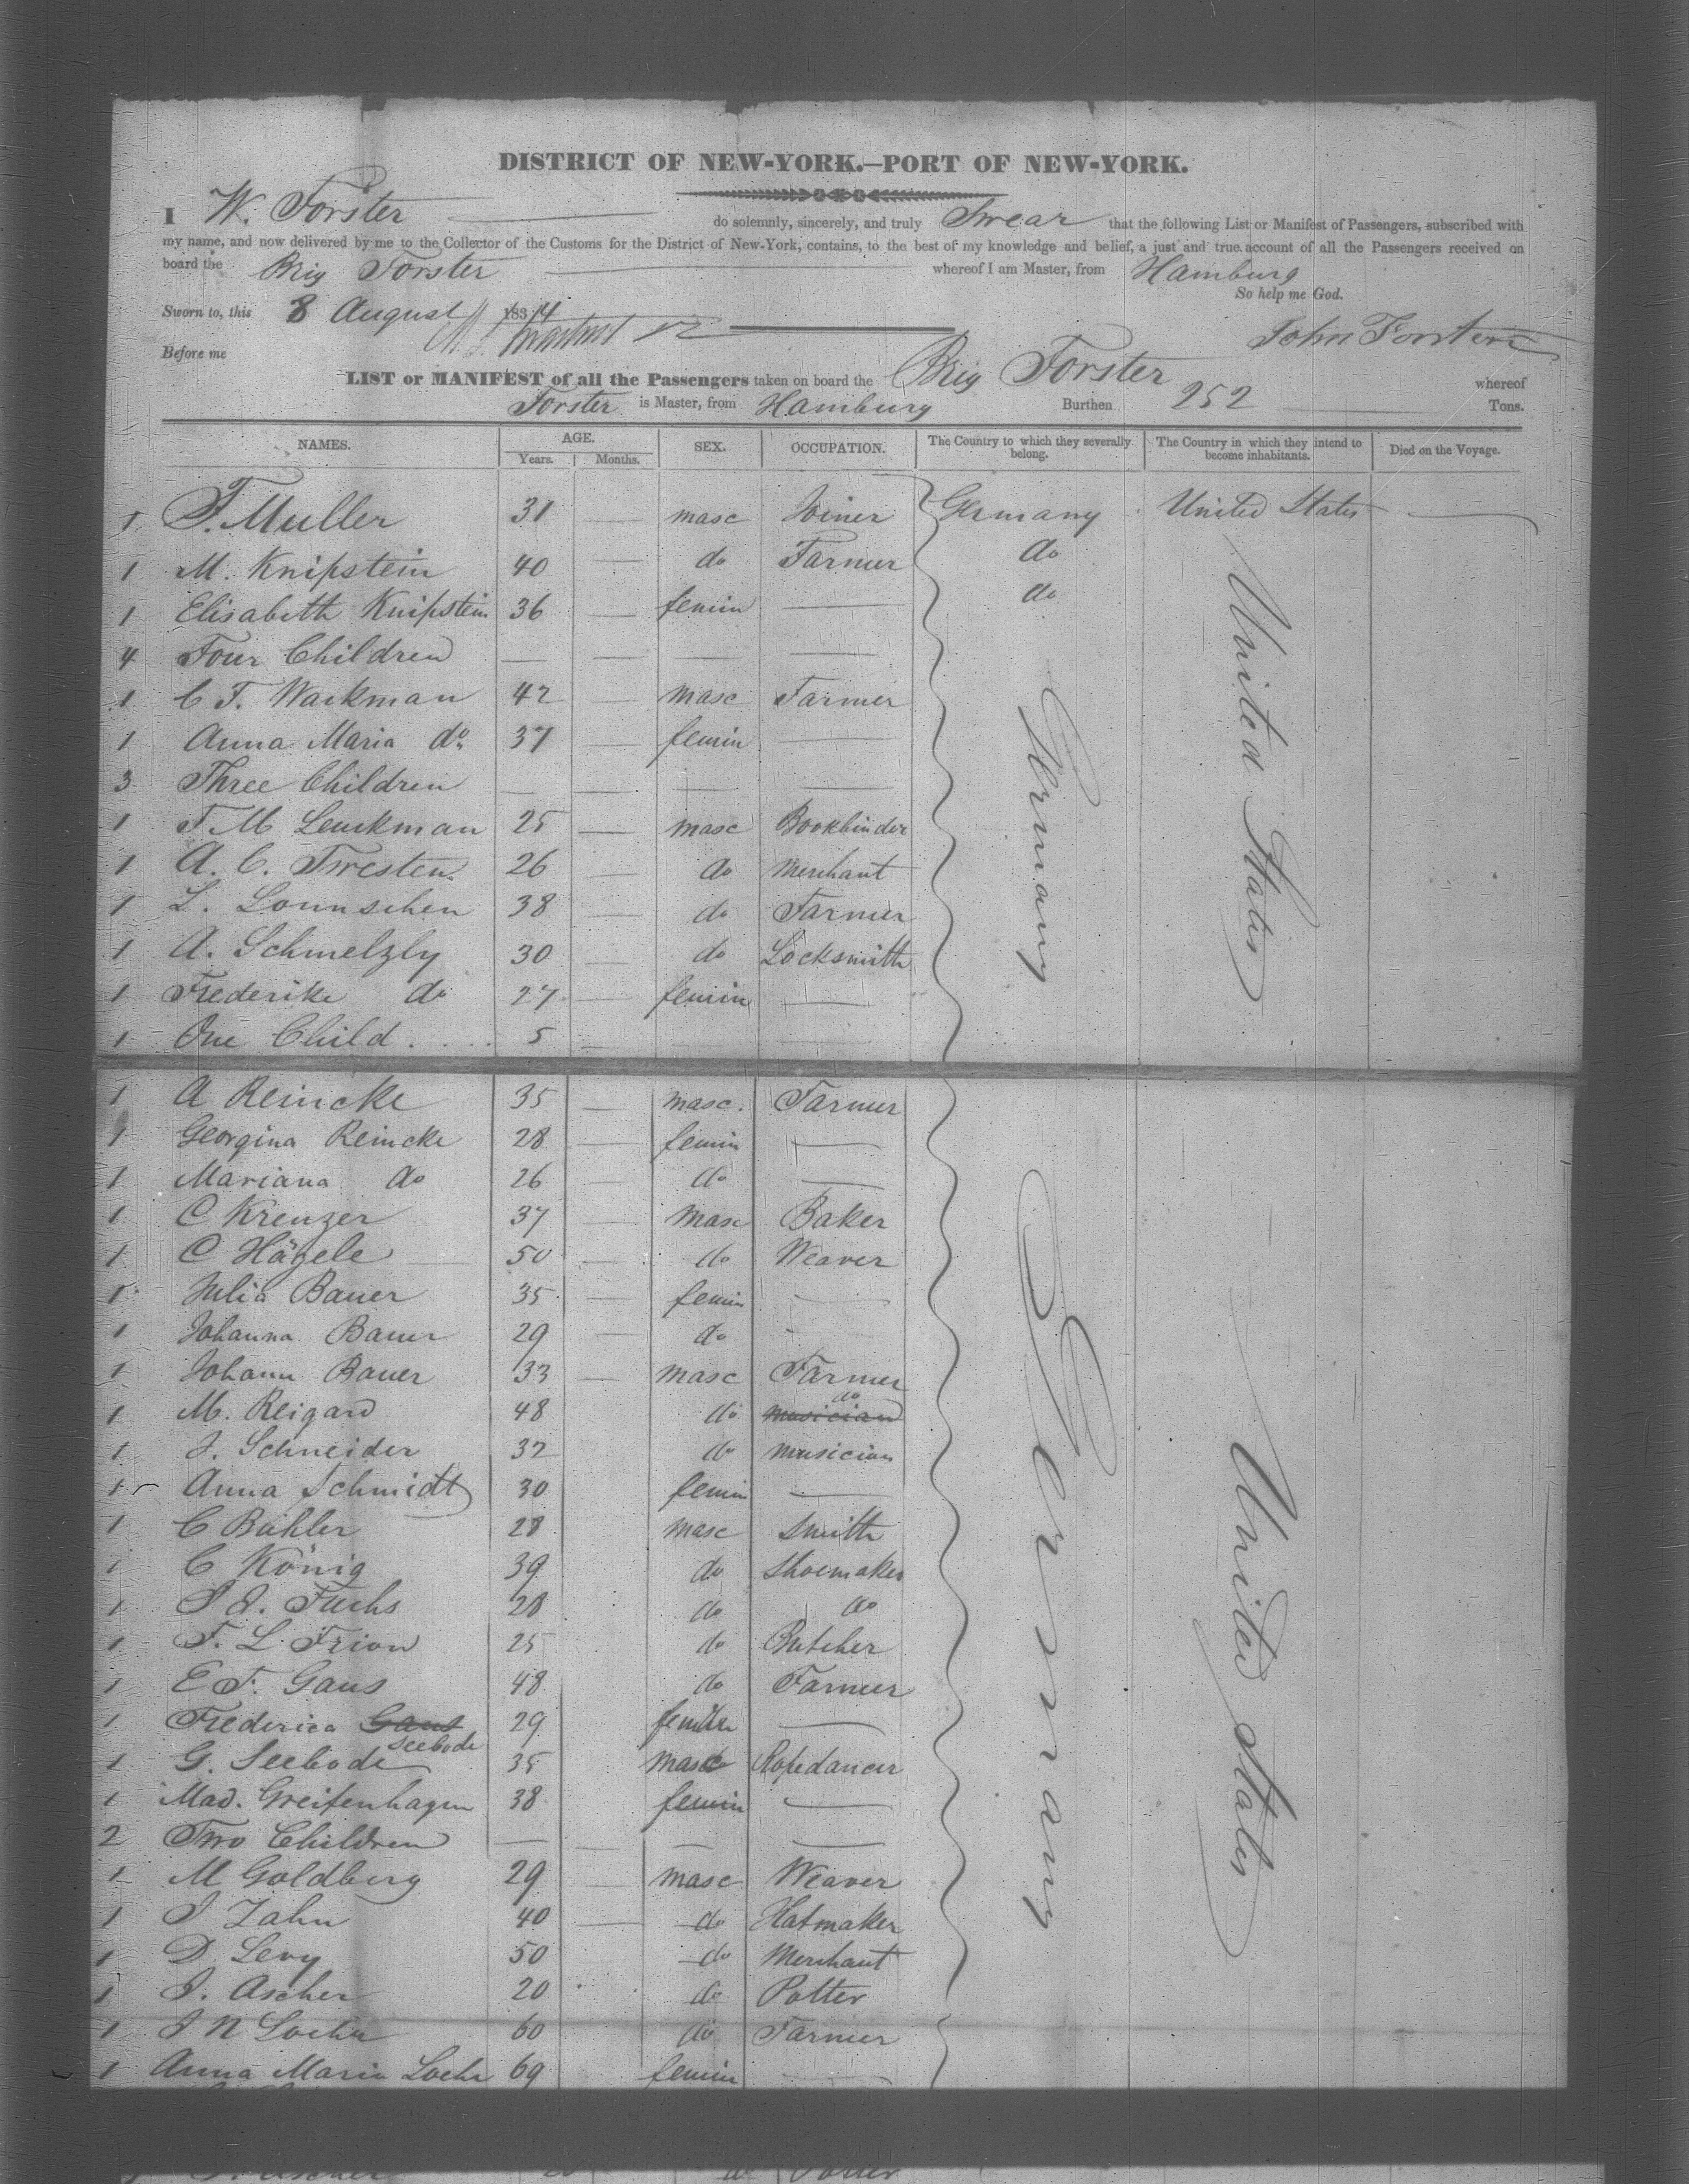 DISTRICT OF NEW-YORK.—PORT OF NEW-YORK.
I W. Forster do solemnly, sincerely, and truly Swear that the following List or Manifest of Passengers, subscribed with
my name, and now delivered by me to the Collector of the Customs for the District of New-York, contains, to the best of my knowledge and belief, a just and true account of all the Passengers received on
board the Brig Forster whereof I am Master, from Hamburg
So help me God.
Sworn to, this 8 August 1834
John Forster
Before me
LIST or MANIFEST of all the Passengers taken on board the Brig Forster whereof
Forster is Master, from Hamburg Burthen 252 Tons.
NAMES. AGE. Years. Months. SEX. OCCUPATION. The Country to which they severally belong. The Country in which they intend to become inhabitants. Died on the Voyage.
1 F. Muller 31 — masc Joiner Germany United States —
1 M. Knipstein 40 — do Farmer do
1 Elisabeth Knipstein 36 — femin — do
4 Four Children — — — —
1 C F. Wackman 42 — masc Farmer
1 Anna Maria do 37 — femin —
3 Three Children — — — —
1 F M Leuckman 25 — masc Bookbinder
1 A. C. Twesten 26 — do Merchant
1 L. Lounschen 38 — do Farmer
1 A. Schmelzly 30 — do Locksmith
1 Frederike do 27 — femin —
1 One Child 5 —
Germany
United States
1 A Reincke 35 — masc. Farmer
1 Georgina Reincke 28 — femin —
1 Mariana do 26 — do —
1 C Kreuzer 37 — masc Baker
1 C Hägele 50 — do Weaver
1 Julia Bauer 35 — femin —
1 Johanna Bauer 29 — do
1 Johann Bauer 33 — masc Farmer
1 M. Reigard 48 do musician do
1 J. Schneider 32 do musician
1 Anna Schmidt 30 femin —
1 C Buhler 28 masc Smith
1 C König 39 do Shoemaker
1 J J. Fuchs 28 do do
1 F. L. Frion 25 do Butcher
1 E F. Gaus 48 do Farmer
1 Frederica Gaus Seebode 29 femin —
1 G. Seebode 35 masc Ropedancer
1 Mad. Greifenhagen 38 femin —
2 Two Children — — — —
1 M Goldberg 29 — masc Weaver
1 J Zahn 40 — do Hatmaker
1 D Levy 50 do Merchant
1 J. Ascher 20 do Potter
1 J N Loehr 60 do Farmer
1 Anna Maria Loehr 69 femin —
Germany
United States